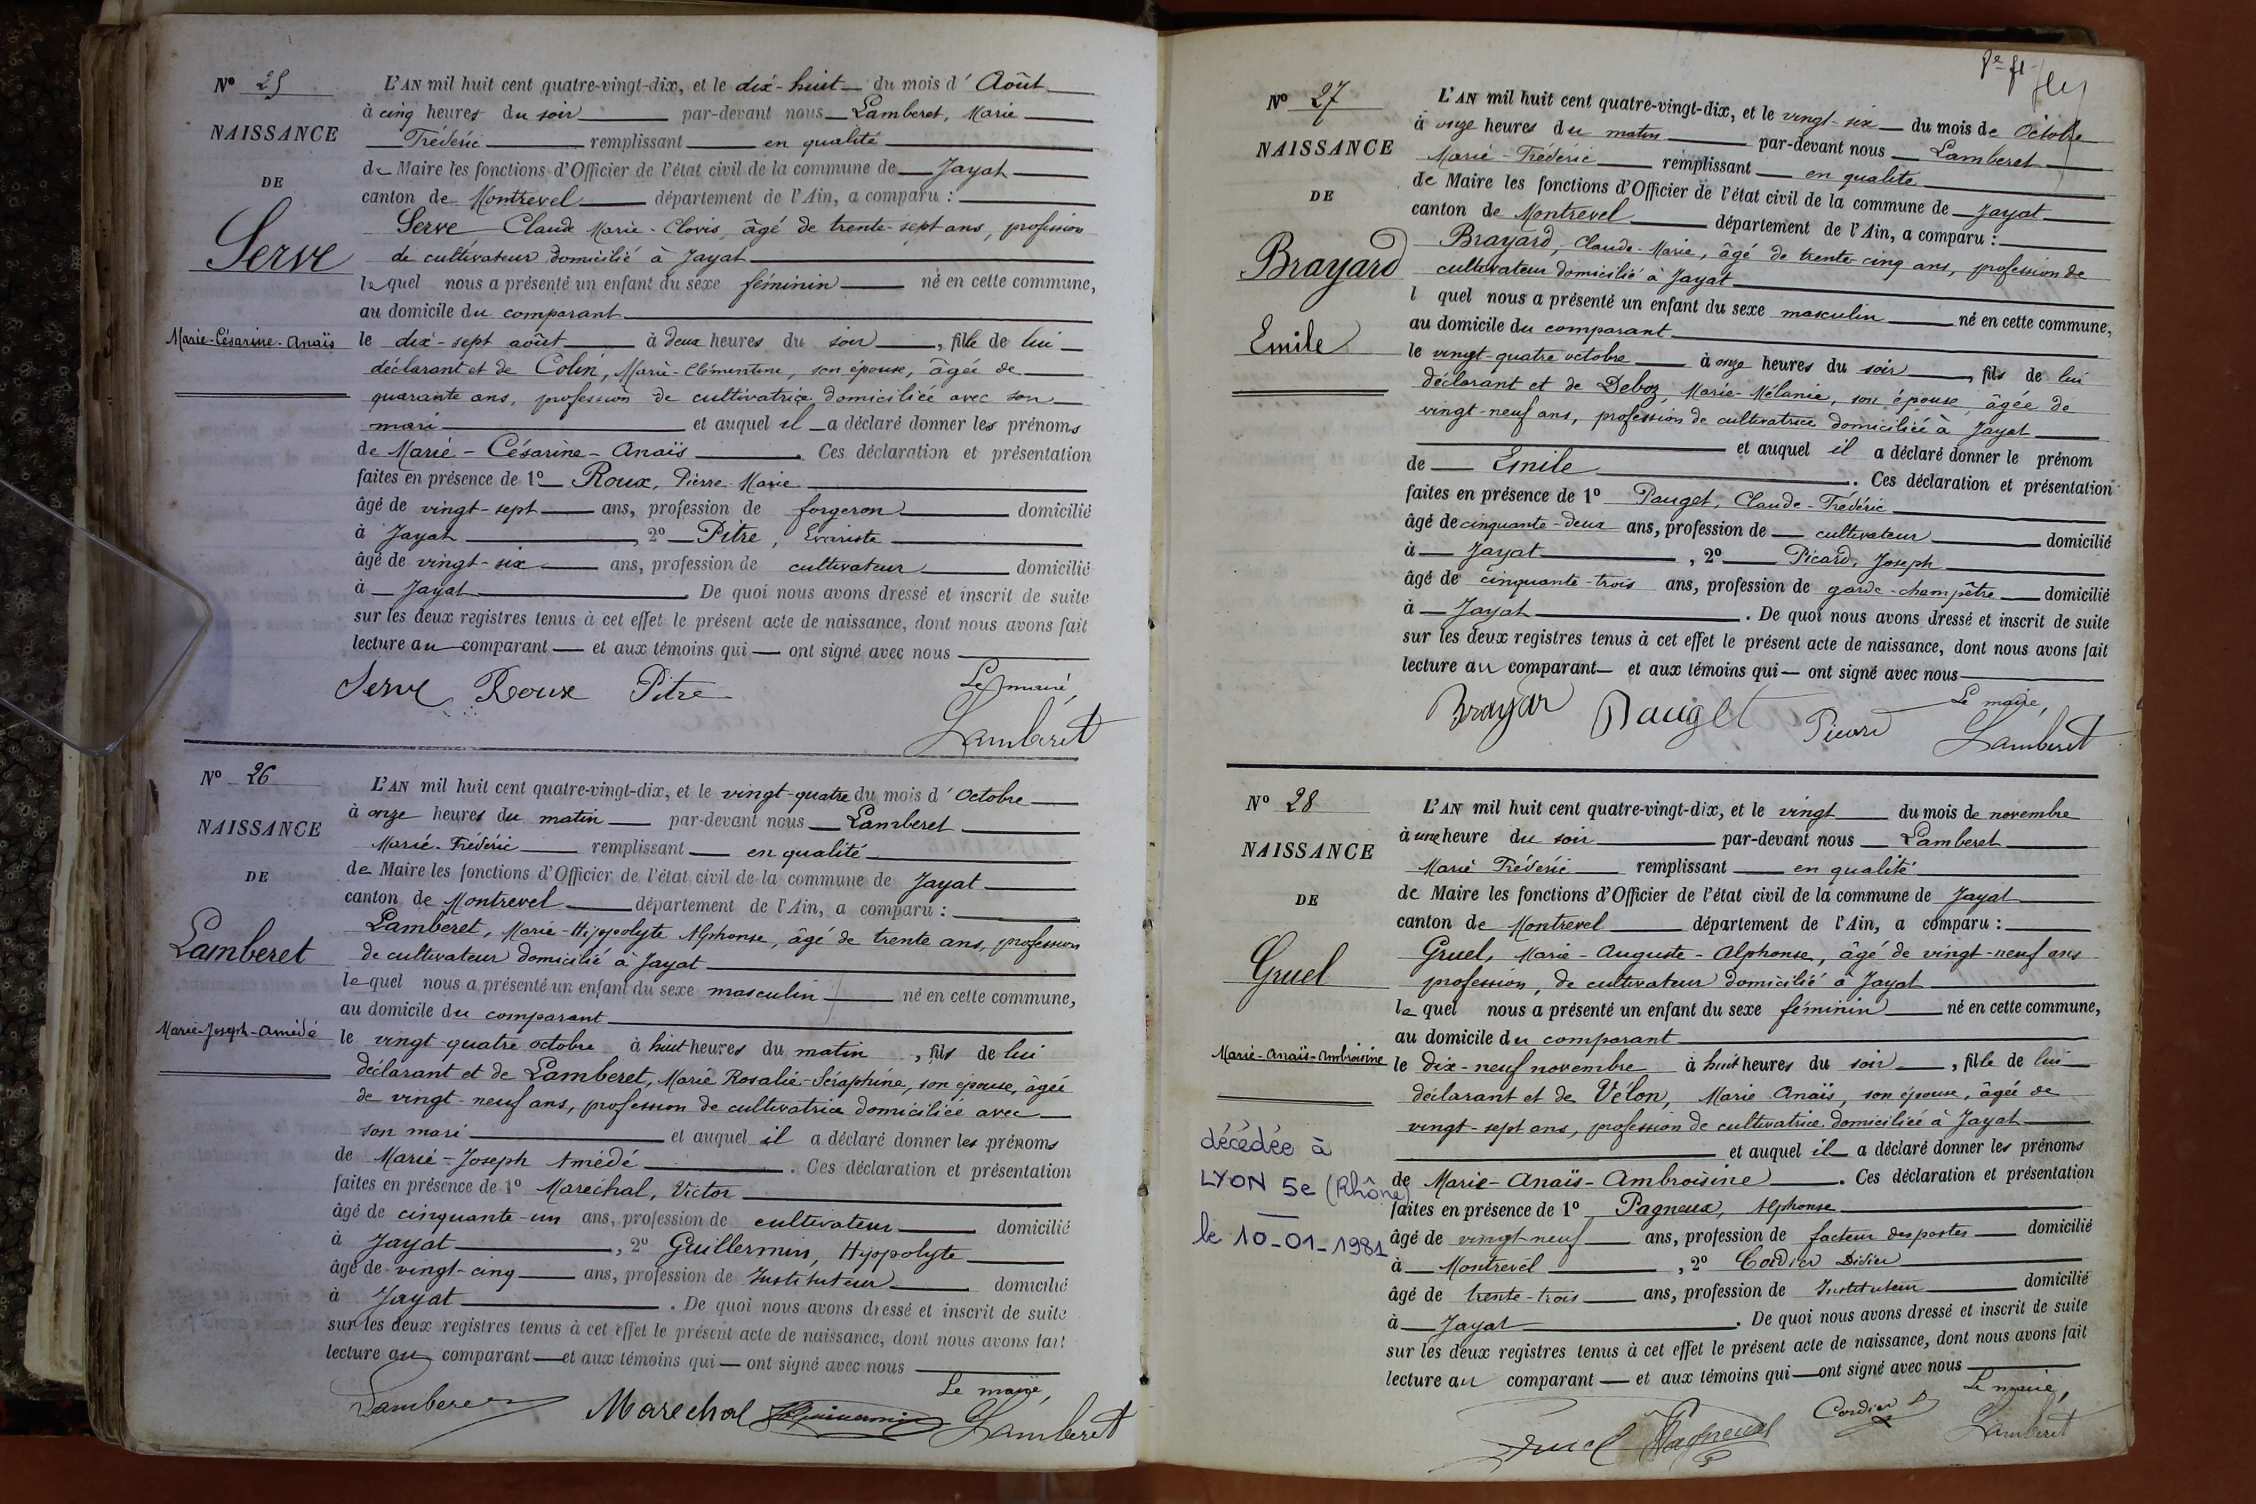 Nº 25
NAISSANCE
DE
Serve
Marie-Césarine-Anaïs
L'AN mil huit cent quatre-vingt-dix, et le dix-huit du mois d' Août
à cinq heures du soir par-devant nous Lamberet, Marie
Frédéric remplissant en qualité
de Maire les fonctions d'Officier de l'état civil de la commune de Jayat
canton de Montrevel département de l'Ain, a comparu :
Serve Claude Marie-Clovis, âgé de trente-sept ans, profession
de cultivateur domicilié à Jayat
lequel nous a présenté un enfant du sexe féminin né en cette commune,
au domicile du comparant
le dix-sept août à deux heures du soir, fille de lui
déclarant et de Colin, Marie-Clémentine, son épouse, âgée de
quarante ans, profession de cultivatrice domiciliée avec son
mari et auquel il a déclaré donner les prénoms
de Marie-Césarine-Anaïs. Ces déclaration et présentation
faites en présence de 1º Roux, Pierre-Marie
âgé de vingt-sept ans, profession de forgeron domicilié
à Jayat, 2º Pitre, Evariste
âgé de vingt-six ans, profession de cultivateur domicilié
à Jayat. De quoi nous avons dressé et inscrit de suite
sur les deux registres tenus à cet effet le présent acte de naissance, dont nous avons fait
lecture au comparant et aux témoins qui ont signé avec nous
Le maire,
Serve Roux Pitre
Lamberet
Nº 26
NAISSANCE
DE
Lamberet
Marie-Joseph-Amédé
L'AN mil huit cent quatre-vingt-dix, et le vingt-quatre du mois d' Octobre
à onze heures du matin par-devant nous Lamberet
Marie-Frédéric remplissant en qualité
de Maire les fonctions d'Officier de l'état civil de la commune de Jayat
canton de Montrevel département de l'Ain, a comparu :
Lamberet, Marie-Hyppolyte Alphonse, âgé de trente ans, profession
de cultivateur domicilié à Jayat
lequel nous a présenté un enfant du sexe masculin né en cette commune,
au domicile du comparant
le vingt-quatre octobre à huit heures du matin, fils de lui
déclarant et de Lamberet, Marie Rosalie-Séraphine, son épouse, âgée
de vingt-neuf ans, profession de cultivatrice domiciliée avec
son mari et auquel il a déclaré donner les prénoms
de Marie-Joseph Amédé. Ces déclaration et présentation
faites en présence de 1º Marechal, Victor
âgé de cinquante-un ans, profession de cultivateur domicilié
à Jayat, 2º Guillermin, Hyppolyte
âgé de vingt-cinq ans, profession de Instituteur domicilié
à Jayat. De quoi nous avons dressé et inscrit de suite
sur les deux registres tenus à cet effet le présent acte de naissance, dont nous avons fait
lecture au comparant et aux témoins qui ont signé avec nous
Le maire,
Lamberet Marechal Guillermin Lamberet
Nº 27
NAISSANCE
DE
Brayard
Emile
L'AN mil huit cent quatre-vingt-dix, et le vingt-six du mois de Octobre
à onze heures du matin par-devant nous Lamberet
Marie-Frédéric remplissant en qualité
de Maire les fonctions d'Officier de l'état civil de la commune de Jayat
canton de Montrevel département de l'Ain, a comparu :
Brayard, Claude-Marie, âgé de trente-cinq ans, profession de
cultivateur domicilié à Jayat
l quel nous a présenté un enfant du sexe masculin né en cette commune,
au domicile du comparant
le vingt-quatre octobre à onze heures du soir, fils de lui
déclarant et de Deboz, Marie-Mélanie, son épouse, âgée de
vingt-neuf ans, profession de cultivatrice domiciliée à Jayat
et auquel il a déclaré donner le prénom
de Emile. Ces déclaration et présentation
faites en présence de 1º Pauget, Claude-Frédéric
âgé de cinquante-deux ans, profession de cultivateur domicilié
à Jayat, 2º Picard, Joseph
âgé de cinquante-trois ans, profession de garde-champêtre domicilié
à Jayat. De quoi nous avons dressé et inscrit de suite
sur les deux registres tenus à cet effet le présent acte de naissance, dont nous avons fait
lecture au comparant et aux témoins qui ont signé avec nous
Le maire,
Brayar Pauget Picard Lamberet
Nº 28
NAISSANCE
DE
Gruel
Marie-Anaïs-Ambroisine
décédée à
LYON 5e (Rhône)
le 10-01-1981
L'AN mil huit cent quatre-vingt-dix, et le vingt du mois de novembre
à une heure du soir par-devant nous Lamberet
Marie Frédéric remplissant en qualité
de Maire les fonctions d'Officier de l'état civil de la commune de Jayat
canton de Montrevel département de l'Ain, a comparu :
Gruel, Marie-Auguste-Alphonse, âgé de vingt-neuf ans
profession, de cultivateur domicilié à Jayat
lequel nous a présenté un enfant du sexe féminin né en cette commune,
au domicile du comparant
le dix-neuf novembre à huit heures du soir, fille de lui
déclarant et de Vélon, Marie Anaïs, son épouse, âgée de
vingt-sept ans, profession de cultivatrice domiciliée à Jayat
et auquel il a déclaré donner les prénoms
de Marie-Anaïs-Ambroisine. Ces déclaration et présentation
faites en présence de 1º Pagneux, Alphonse
âgé de vingt-neuf ans, profession de facteur des postes domicilié
à Montrevel, 2º Cordier Didier
âgé de trente-trois ans, profession de Instituteur domicilié
à Jayat. De quoi nous avons dressé et inscrit de suite
sur les deux registres tenus à cet effet le présent acte de naissance, dont nous avons fait
lecture au comparant et aux témoins qui ont signé avec nous
Le maire,
Gruel Pagneux Cordier D Lamberet